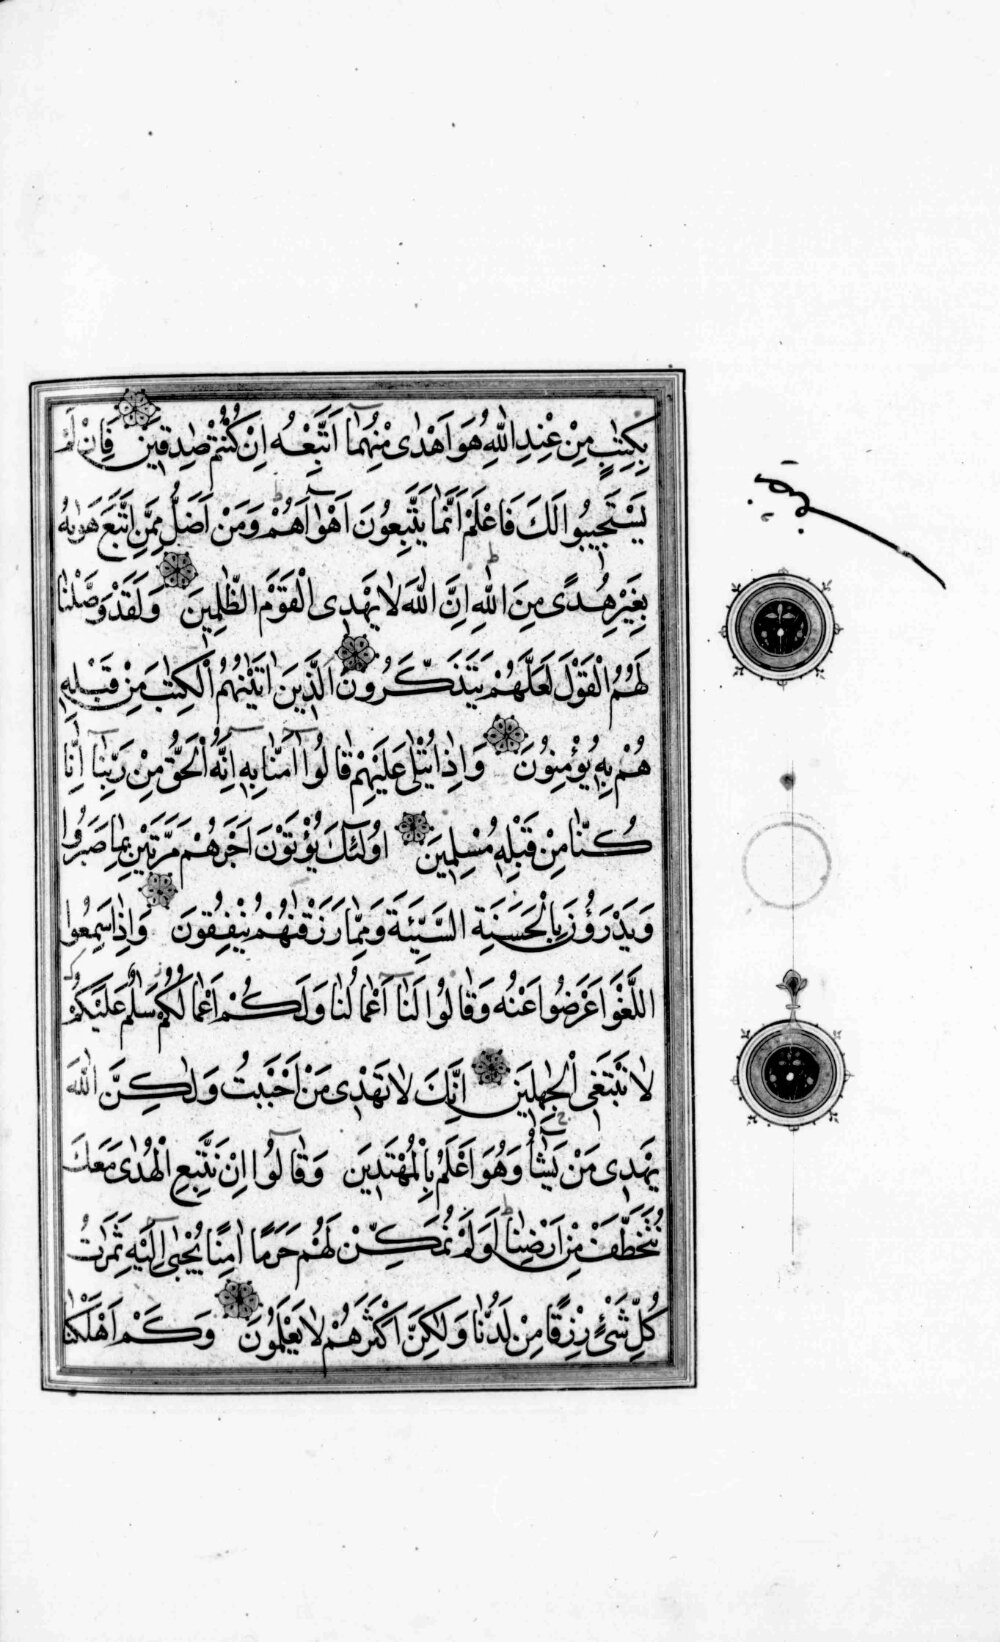 بِكِتٰبٍ مِنْ عِنْدِ اللّٰهِ هُوَ اَهْدٰى مِنْهُمَٓا اَتَّبِعْهُ اِنْ كُنْتُمْ صٰدِقِينَ فَاِنْ لَمْ
يَسْتَجِيبُوا لَكَ فَاعْلَمْ اَنَّمَا يَتَّبِعُونَ اَهْوَٓاءَهُمْ وَمَنْ اَضَلُّ مِمَّنِ اتَّبَعَ هَوٰيهُ
بِغَيْرِ هُدًى مِنَ اللّٰهِ اِنَّ اللّٰهَ لَا يَهْدِى الْقَوْمَ الظّٰلِمِينَ وَلَقَدْ وَصَّلْنَا
لَهُمُ الْقَوْلَ لَعَلَّهُمْ يَتَذَكَّرُونَ اَلَّذِينَ اٰتَيْنٰهُمُ الْكِتٰبَ مِنْ قَبْلِهِ
هُمْ بِهِ يُؤْمِنُونَ وَاِذَا يُتْلٰى عَلَيْهِمْ قَالُٓوا اٰمَنَّا بِهِ اِنَّهُ الْحَقُّ مِنْ رَبِّنَٓا اِنَّا
كُنَّا مِنْ قَبْلِهِ مُسْلِمِينَ اُولٰٓئِكَ يُؤْتَوْنَ اَجْرَهُمْ مَرَّتَيْنِ بِمَا صَبَرُوا
وَيَدْرَؤُنَ بِالْحَسَنَةِ السَّيِّئَةَ وَمِمَّا رَزَقْنٰهُمْ يُنْفِقُونَ وَاِذَا سَمِعُوا
اللَّغْوَ اَعْرَضُوا عَنْهُ وَقَالُوا لَنَٓا اَعْمَالُنَا وَلَكُمْ اَعْمَالُكُمْ سَلَامٌ عَلَيْكُمْ
لَا نَبْتَغِى الْجٰهِلِينَ اِنَّكَ لَا تَهْدِى مَنْ اَحْبَبْتَ وَلٰكِنَّ اللّٰهَ
يَهْدِى مَنْ يَشَٓاءُ وَهُوَ اَعْلَمُ بِالْمُهْتَدِينَ وَقَالُٓوا اِنْ نَتَّبِعِ الْهُدٰى مَعَكَ
نُتَخَطَّفْ مِنْ اَرْضِنَا اَوَلَمْ نُمَكِّنْ لَهُمْ حَرَمًا اٰمِنًا يُجْبٰٓى اِلَيْهِ ثَمَرٰتُ
كُلِّ شَىْءٍ رِزْقًا مِنْ لَدُنَّا وَلٰكِنَّ اَكْثَرَهُمْ لَا يَعْلَمُونَ وَكَمْ اَهْلَكْنَا